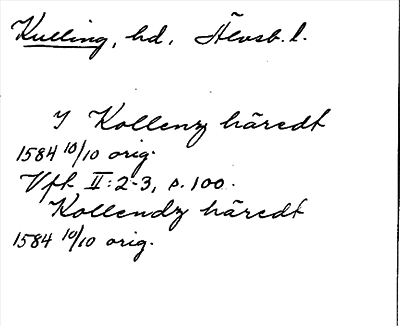 Kulling, hd, Älvsb. l.
I Kollenz häredt
1584 10/10 orig.
Vfk II:2-3, s. 100.
Kollendz häredt
1584 10/10 orig.